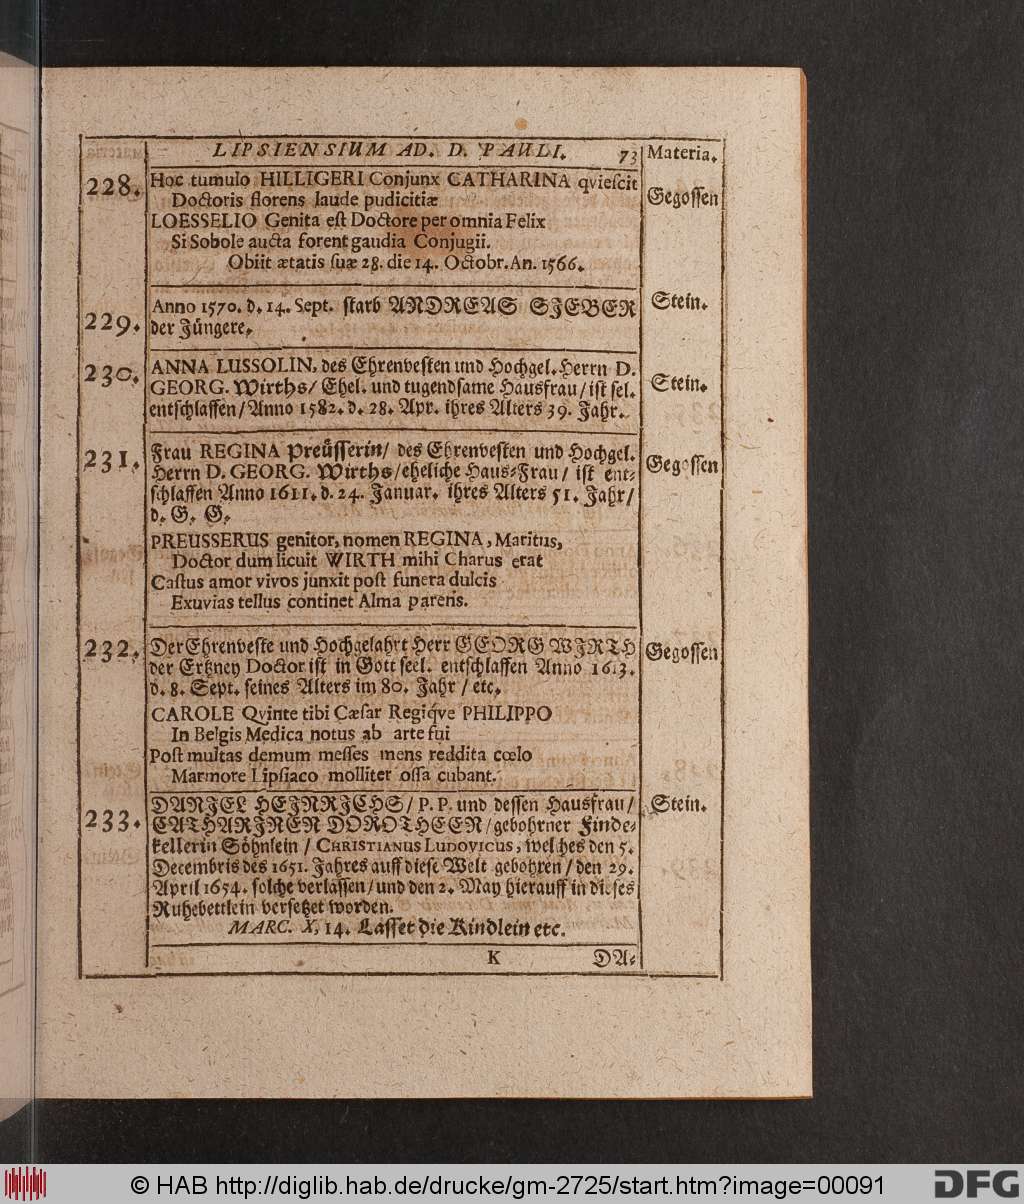 LIPSIENSIUM AD. D. PAULI. 73 Materia.
228. Hoc tumulo HILLIGERI Conjunx CATHARINA qviescit Gegossen
Doctoris florens laude pudicitiæ
LOESSELIO Genita est Doctore per omnia Felix
Si Sobole aucta forent gaudia Conjugii.
Obiit ætatis suæ 28. die 14. Octobr. An. 1566.
229. Anno 1570. d. 14. Sept. starb ANDREAS SIEBER Stein.
der Jüngere.
230. ANNA LUSSOLIN, des Ehrenvesten und Hochgel. Herrn D. Stein.
GEORG. Wirths / Ehel. und tugendsame Hausfrau / ist sel.
entschlaffen / Anno 1582. d. 28. Apr. ihres Alters 39. Jahr.
231. Frau REGINA Preüsserin / des Ehrenvesten und Hochgel. Gegossen
Herrn D. GEORG. Wirths / eheliche Haus-Frau / ist ent-
schlaffen Anno 1611. d. 24. Januar. ihres Alters 51. Jahr /
d. G. G.
PREUSSERUS genitor, nomen REGINA, Maritus,
Doctor dum licuit WIRTH mihi Charus erat
Castus amor vivos junxit post funera dulcis
Exuvias tellus continet Alma parens.
232. Der Ehrenveste und Hochgelahrt Herr GEORG WIRTH Gegossen
der Ertzney Doctor ist in Gott seel. entschlaffen Anno 1613.
d. 8. Sept. seines Alters im 80. Jahr / etc.
CAROLE Qvinte tibi Cæsar Regiq́ve PHILIPPO
In Belgis Medica notus ab arte fui
Post multas demum messes mens reddita cœlo
Marmore Lipsiaco molliter ossa cubant.
233. DANIEL HEINRICHS / P. P. und dessen Hausfrau / Stein.
CATHARINEN DOROTHEEN / gebohrner Finde-
kellerin Söhnlein / CHRISTIANUS LUDOVICUS, welches den 5.
Decembris des 1651. Jahres auff diese Welt gebohren / den 29.
April 1654. solche verlassen / und den 2. May hierauff in dieses
Ruhebettlein versetzet worden.
MARC. X, 14. Lasset die Kindlein etc.
K DA-
© HAB http://diglib.hab.de/drucke/gm-2725/start.htm?image=00091 DFG